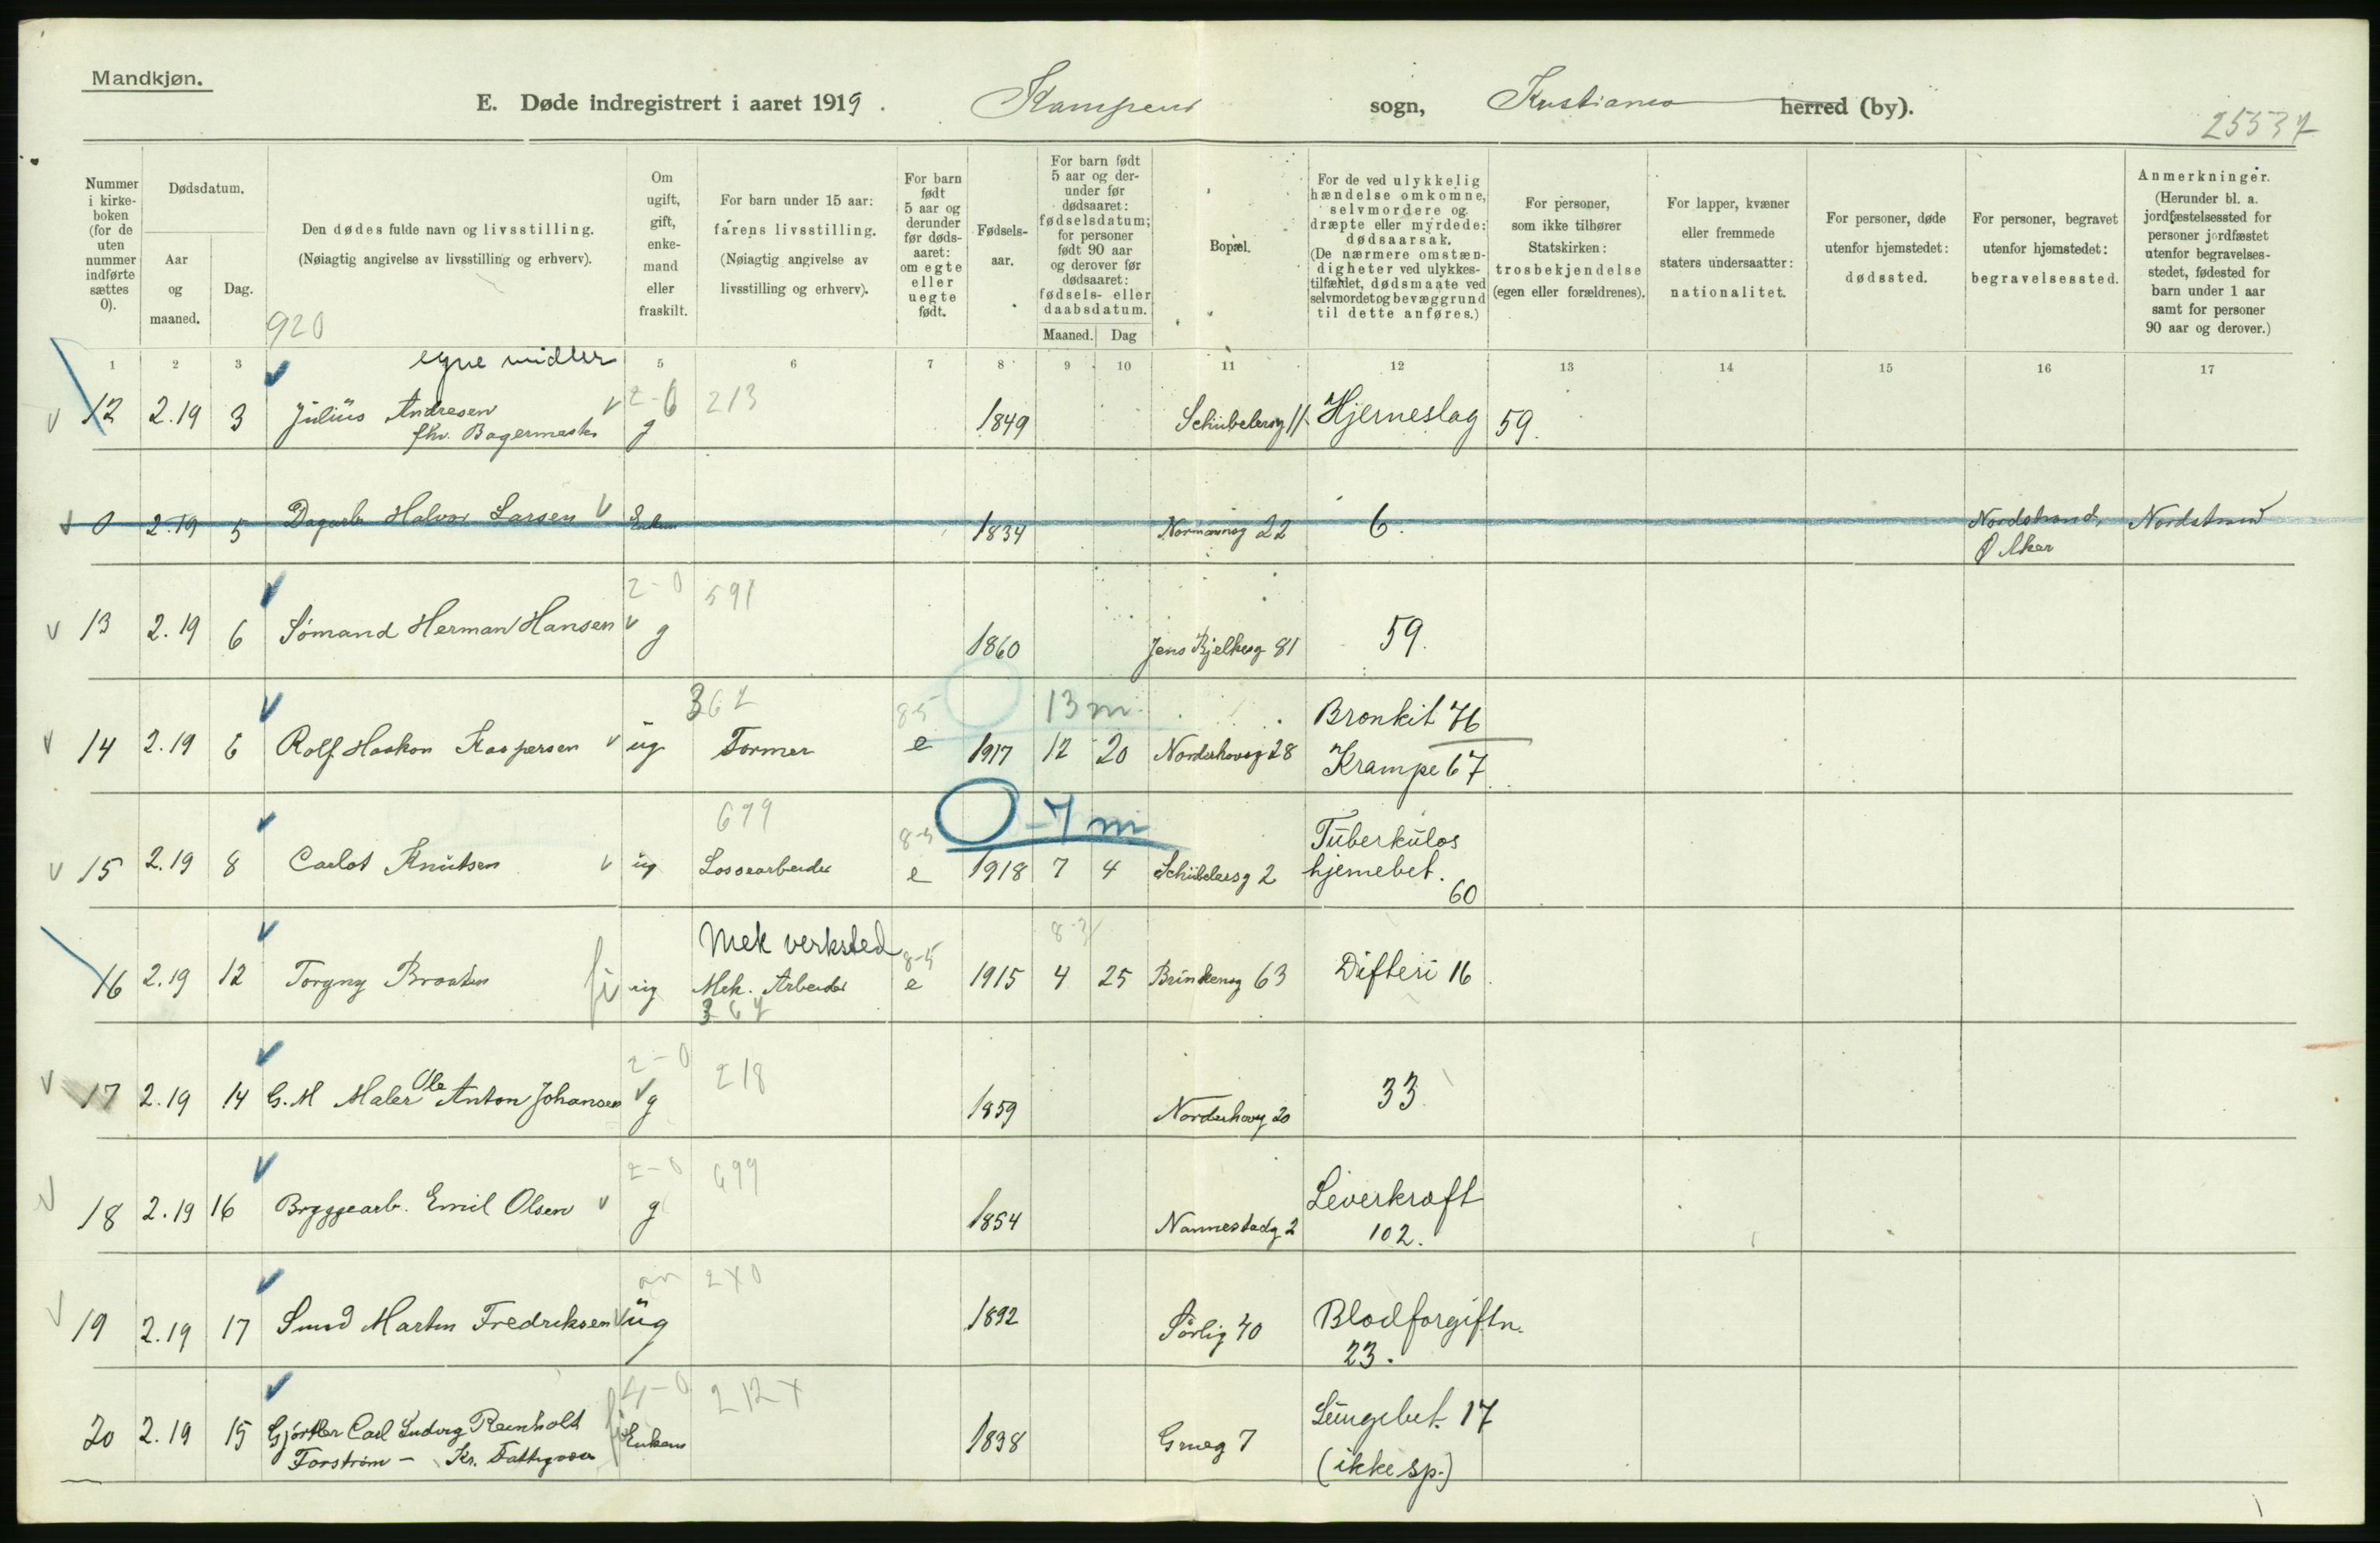 Mandkjøn.
E. Døde indregistrert i aaret 1919. Kampens sogn, Kristiania herred (by).
25537
Nummer i kirke-boken (for de uten nummer indførte sættes 0).
Dødsdatum.
Aar og maaned.
Dag.
Den dødes fulde navn og livsstilling.
(Nøiagtig angivelse av livsstilling og erhverv).
920
Om ugift, gift, enke-mand eller fraskilt.
For barn under 15 aar:
farens livsstilling.
(Nøiagtig angivelse av livsstilling og erhverv).
For barn født 5 aar og derunder før døds-aaret: om egte eller uegte født.
Fødsels-aar.
For barn født 5 aar og der-under før dødsaaret: fødselsdatum; for personer født 90 aar og derover før dødsaaret: fødsels- eller daabsdatum.
Maaned. Dag
Bopæl.
For de ved ulykkelig hændelse omkomne, selvmordere og dræpte eller myrdede: dødsaarsak.
(De nærmere omstæn-digheter ved ulykkes-tilfældet, dødsmaate ved selvmordet og bevæggrund til dette anføres.)
For personer, som ikke tilhører Statskirken: trosbekjendelse (egen eller forældrenes).
For lapper, kvæner eller fremmede staters undersaatter: nationalitet.
For personer, døde utenfor hjemstedet: dødssted.
For personer, begravet utenfor hjemstedet: begravelsessted.
Anmerkninger.
(Herunder bl. a. jordfæstelsessted for personer jordfæstet utenfor begravelses-stedet, fødested for barn under 1 aar samt for personer 90 aar og derover.)
1 2 3 5 6 7 8 9 10 11 12 13 14 15 16 17
egne midler
z-0 213
12 2.19 3 Julius Andresen g 1849 Schübelersg 11 Hjerneslag 59.
fhv. Bagermester
0 2.19 5 Dagarb Halvor Larsen Enkem 1834 Normannsg 22 6. Nordstrand, Nordstrand
Ø Aker
z-0 591
13 2.19 6 Sømand Herman Hansen g 1860 Jens Bjelkesg 81 59.
367 85 13 m.
14 2.19 6 Rolf Haakon Kaspersen ug Former e 1917 12 20 Norderhovsg 28 Bronkit 76
Krampe 67
679 8-5 0-7 m
15 2.19 8 Carlot Knutsen ug Lossearbeider e 1918 7 4 Schübelersg 2 Tuberkulos
hjernebet.
60
Mek verksted 8-5 8-3
16 2.19 12 Torgny Braaten ug Mek. Arbeider e 1915 4 25 Brinkensg 63 Difteri 16
367
z-0 218
17 2.19 14 G. M Maler Ole Anton Johansen g 1859 Norderhovg 20 33
z-0 699
18 2.19 16 Bryggearb. Emil Olsen g 1854 Nannestadg 2 Leverkræft
102.
an 2x0
19 2.19 17 Smed Martin Fredriksen ug 1892 Sørlig 40 Blodforgiftn.
23.
4-0 212x
20 2.19 15 Gjørtler Carl Ludvig Reinholt Enkem 1838 Grueg 7 Lungebet. 17
Forstrøm - Kr. Fattigvæsen (ikke sp.)